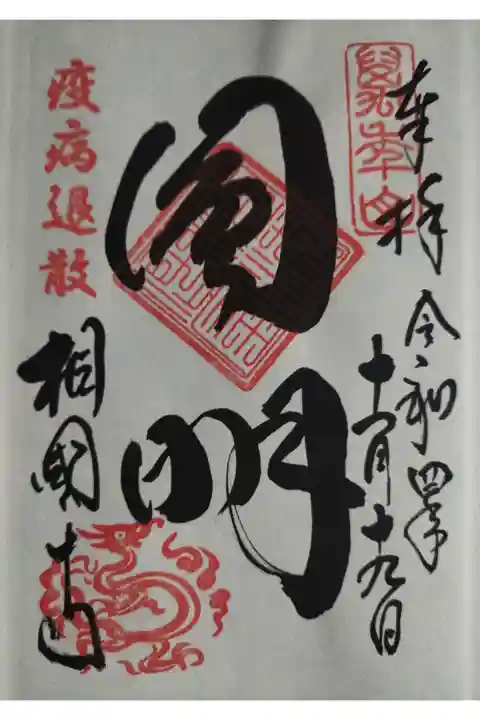 奉拝
令和四年
十一月十九日
圓明
疫病退散
相國寺